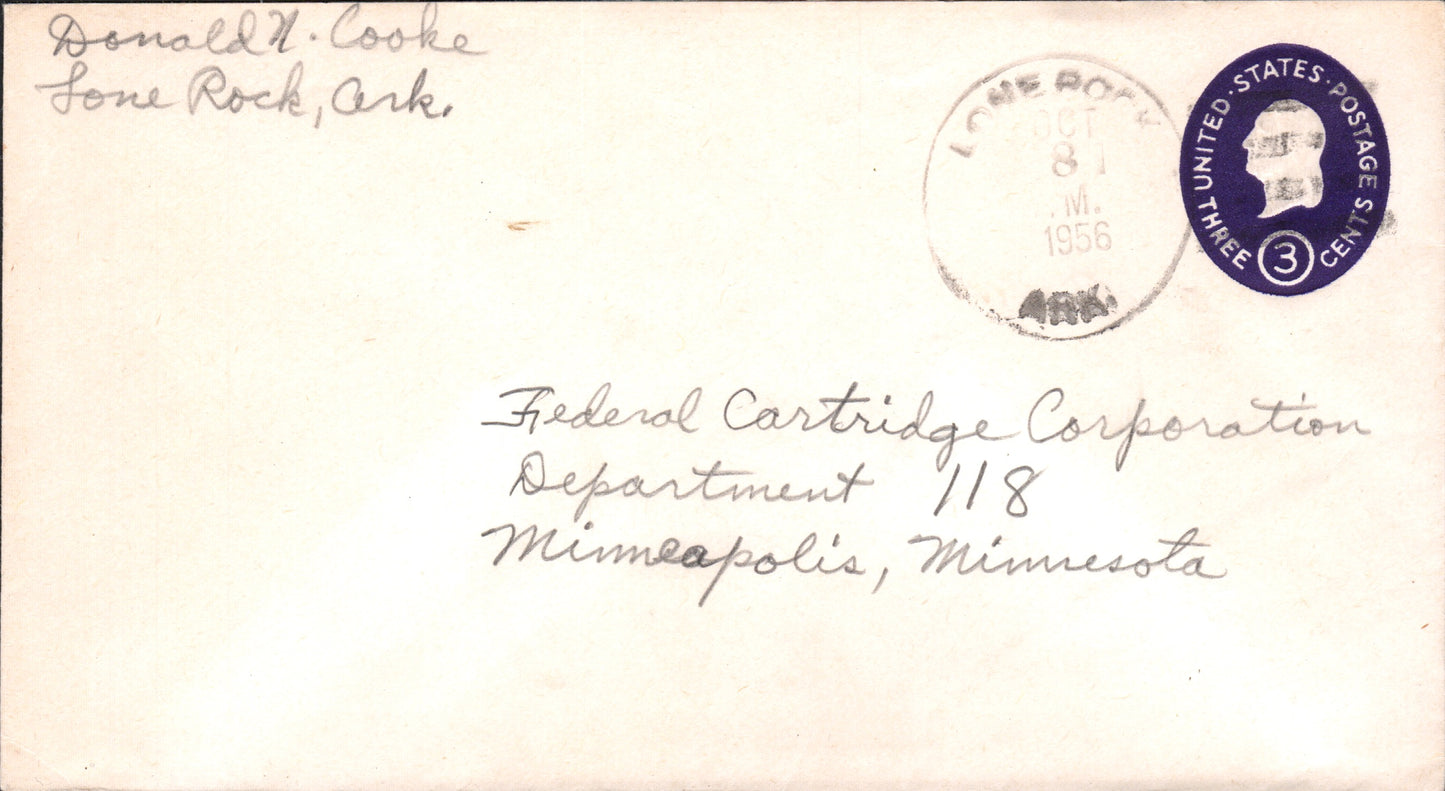 Donald N. Cooke
Lone Rock, Ark.
LONE ROCK
OCT
8
.M.
1956
ARK.
UNITED·STATES·POSTAGE
THREE 3 CENTS
Federal Cartridge Corporation
Department 118
Minneapolis, Minnesota